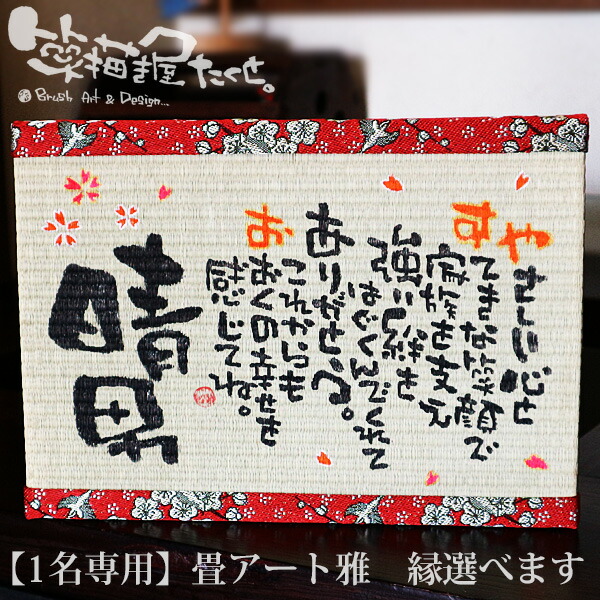 筆描き屋たくと。
Brush Art & Design...
やさしい心と
すてきな笑顔で
家族を支え
強い絆を
はぐくんでくれて
ありがとう。
これからも
おおくの幸せを
感じてね。
晴男
【1名専用】畳アート雅 縁選べます